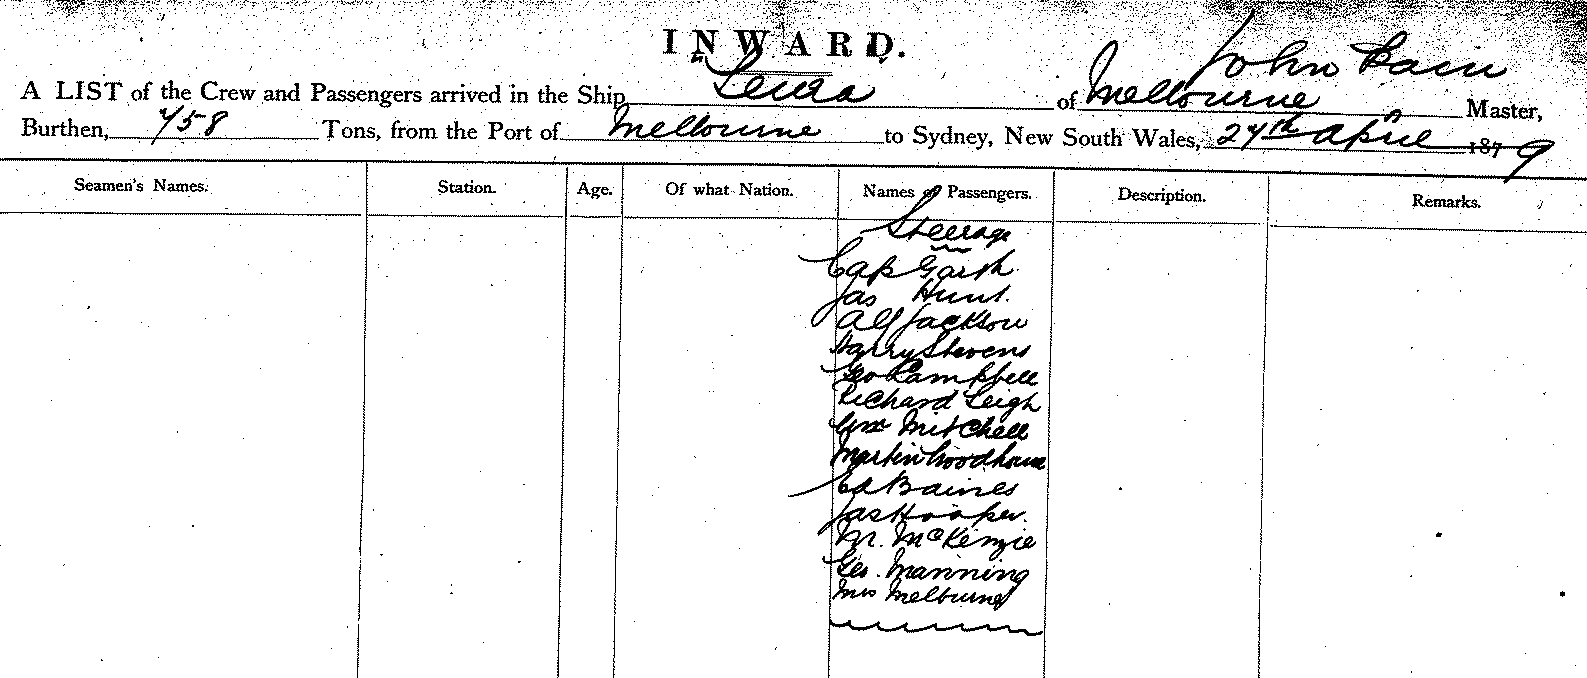 INWARD.
A LIST of the Crew and Passengers arrived in the Ship Leura of Melbourne John Pain Master,
Burthen, 458 Tons, from the Port of Melbourne to Sydney, New South Wales, 24th April 1879
Seamen's Names. Station. Age. Of what Nation. Names of Passengers. Description. Remarks.
Steerage
Cap Garth
Jas Hunt.
Alf Jackson
Harry Stevens
Geo Campbell
Richard Leigh
Wm Mitchell
Martin Woodhouse
Ed Baines
Jas Hooper
Mr. McKenzie
Geo. Manning
Mrs Melburne